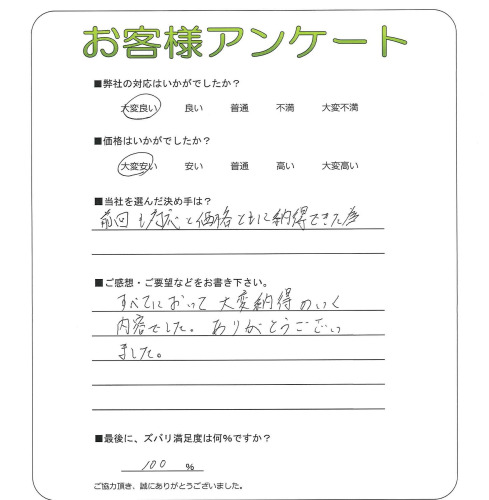 お客様アンケート
■弊社の対応はいかがでしたか?
大変良い 良い 普通 不満 大変不満
■価格はいかがでしたか?
大変安い 安い 普通 高い 大変高い
■当社を選んだ決め手は?
前回も対応と価格ともに納得できた為
■ご感想・ご要望などをお書き下さい。
すべてにおいて大変納得のいく
内容でした。ありがとうございい
ました。
■最後に、ズバリ満足度は何%ですか?
100 %
ご協力頂き、誠にありがとうございました。